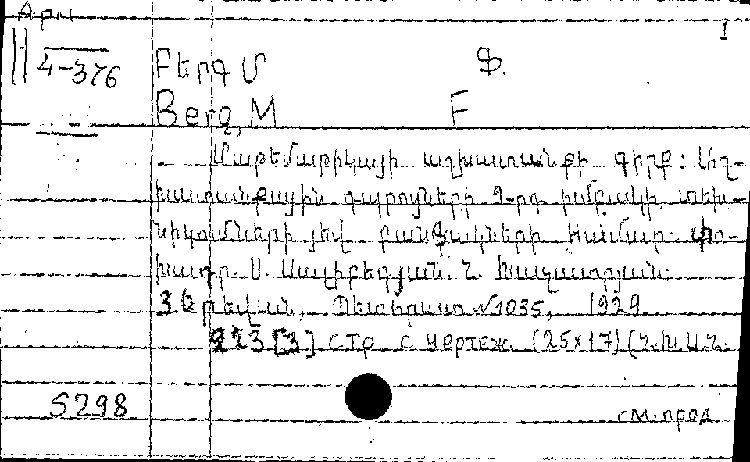 Арм
1
4-376 Բերգ Մ Ֆ.
Berg, M F
Մաթեմատիկայի աշխատանքի գիրք: Աշ-
խատանքային դպրոցների 9-րդ խմբակի, տեխ-
նիկումների յեվ բանֆակների համար. փո-
խադր. Ս. Սալիբեգյան. Ն. Խաչատրյան.
Յերեվան, Պետհրատ №1035, 1929
223 [3] стр с чертеж. (25x17) (Հ.Խ.Ս.Հ.
5298 см. прод